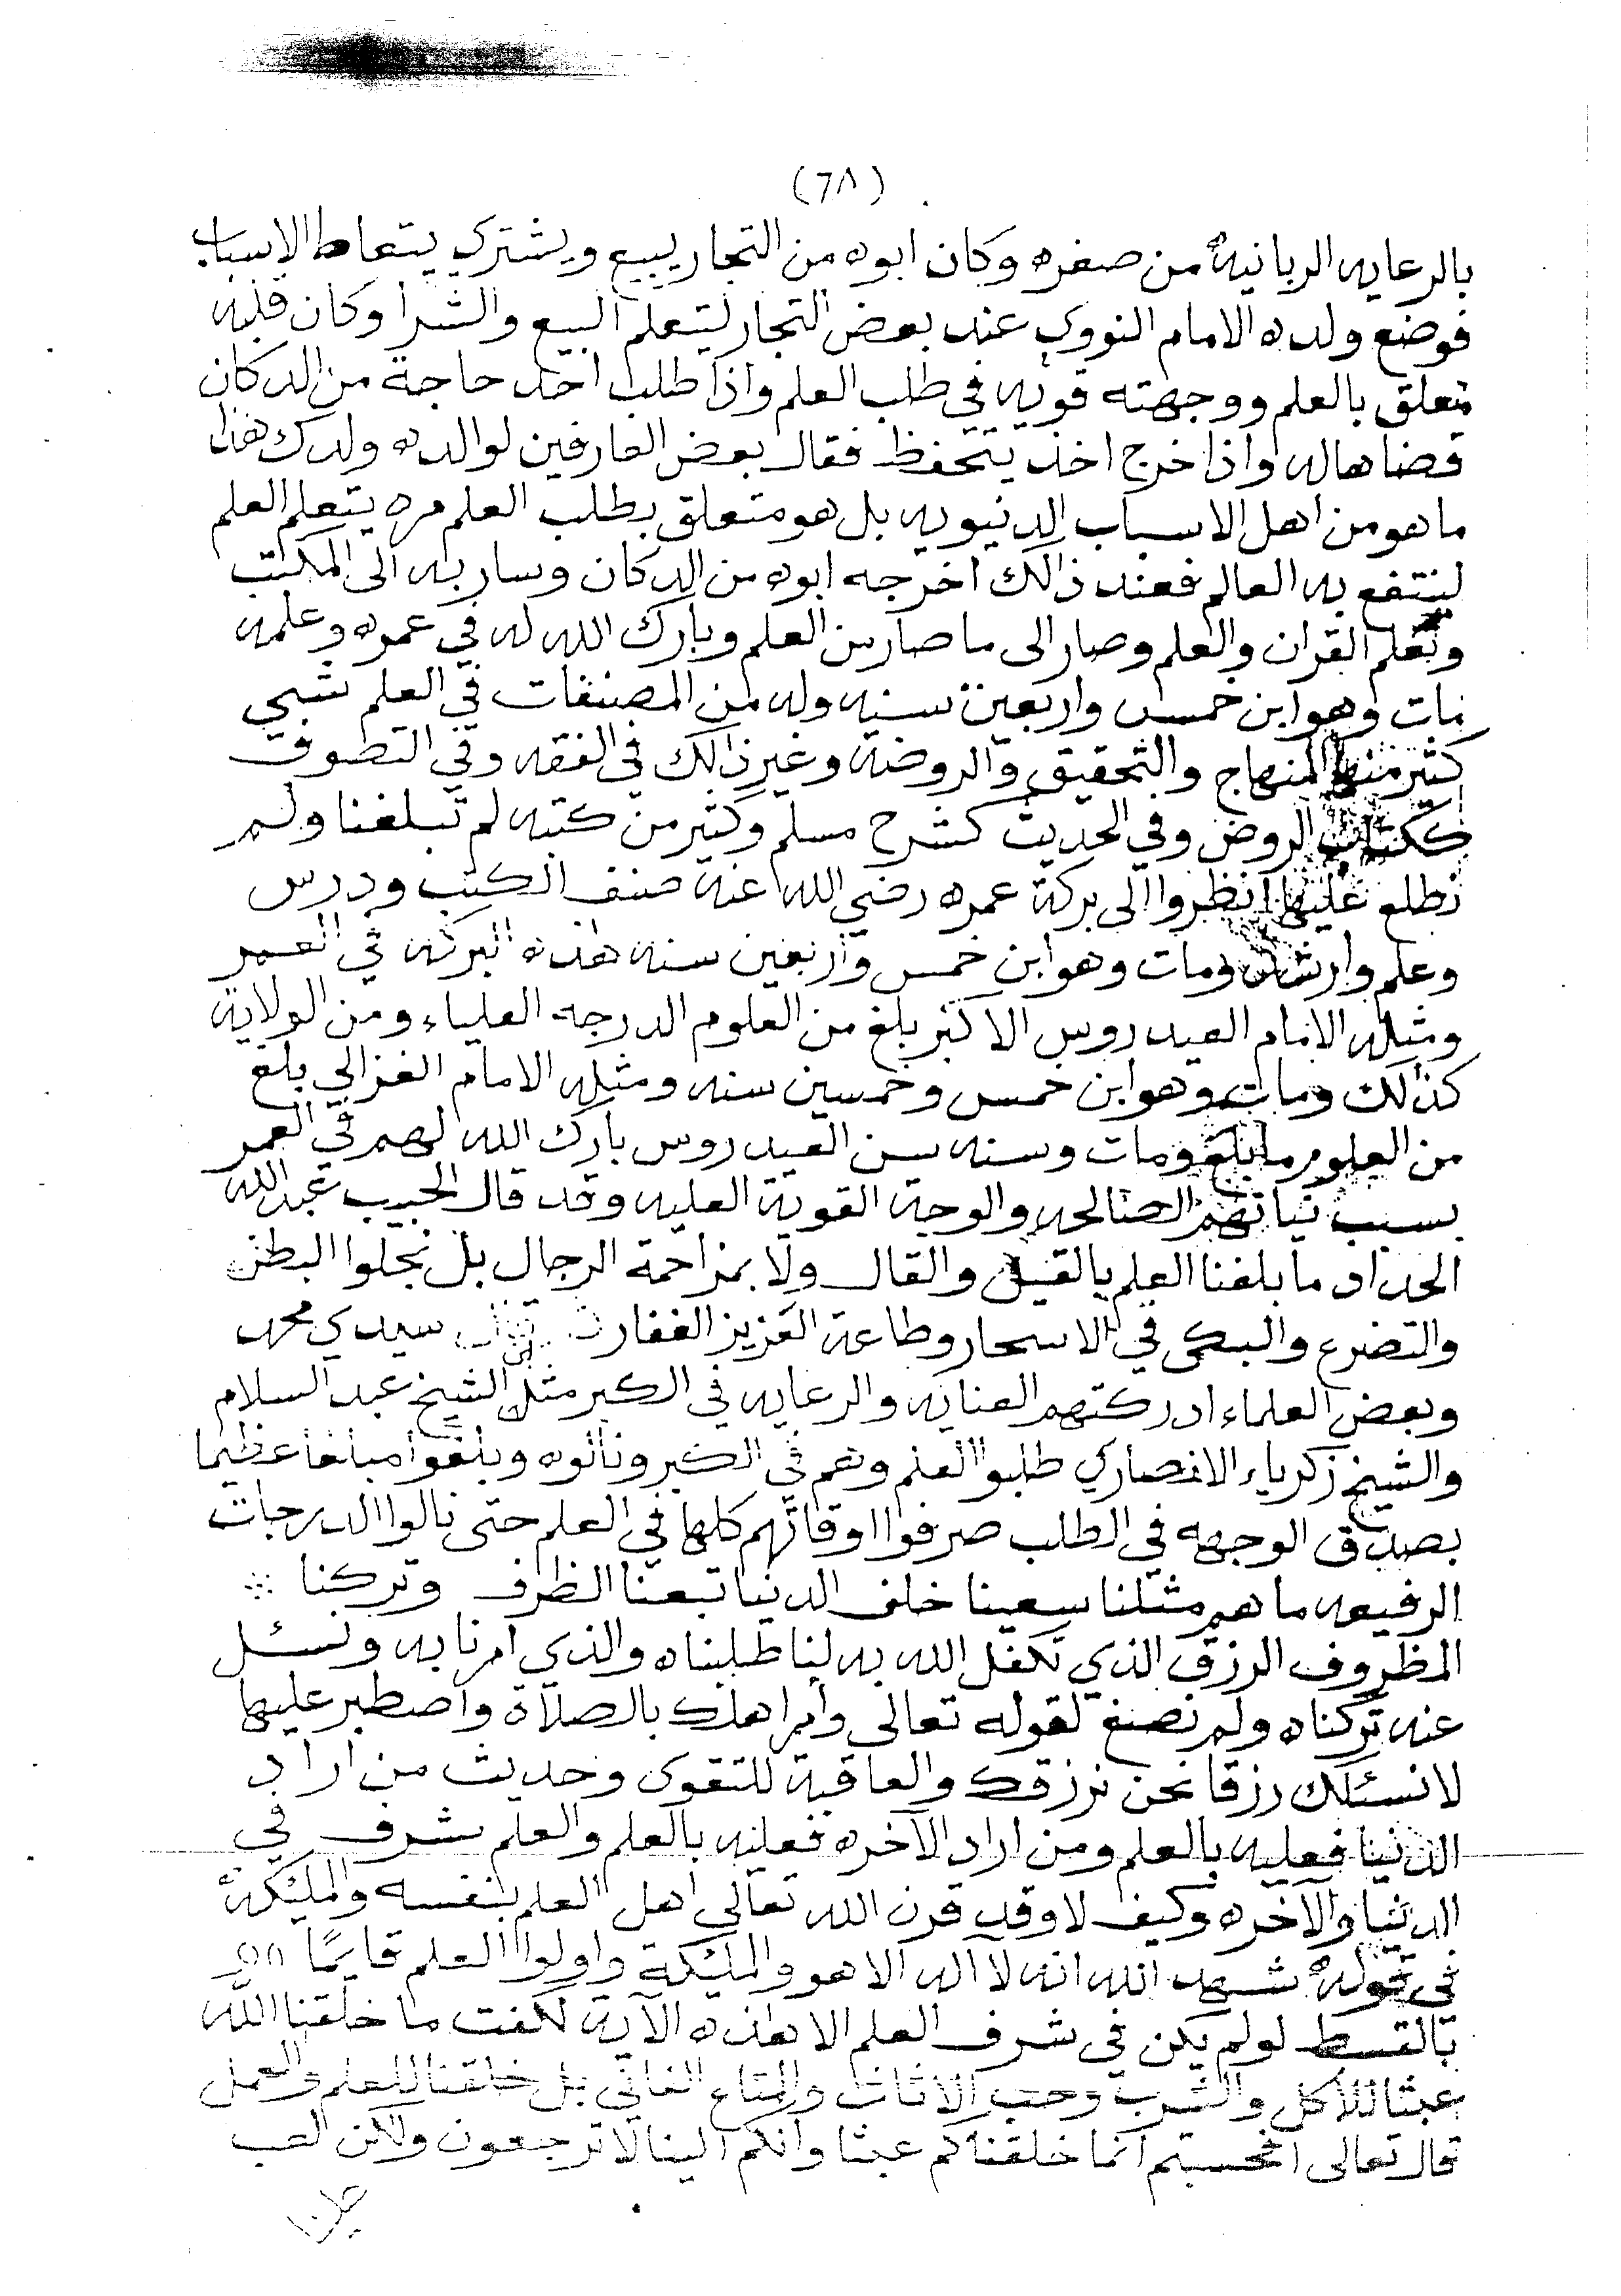 (٦٨)
بالرعايه الربانية من صغره وكان ابوه من التجار يبيع ويشتري يتعاط الاسباب
فوضع ولده الامام النووي عند بعض التجار ليتعلم البيع والشرا وكان قلبه
متعلق بالعلم ووجهته قويه في طلب العلم واذا طلب احد حاجة من الدكان
قضاهاله واذا خرج اخذ يتحفظ فقال بعض العارفين لوالده ولدك هذا
ماهو من اهل الاسباب الدنيويه بل هو متعلق بطلب العلم مره يتعلم العلم
لينتفع به العالم فعند ذالك اخرجه ابوه من الدكان وسار به الى المكتب
وتعلم القران والعلم وصار الى ما صار من العلم وبارك الله له في عمره وعلمه
مات وهو ابن خمس واربعين سنيه وله من المصنفات في العلم شيي
كثير منها المنهاج والتحقيق والروضة وغير ذالك في الفقه وفي التصوف
ككتاب الروض وفي الحديث كشرح مسلم وكثير من كتبه لم تبلغنا ولم
نطلع عليها انظروا الى بركة عمره رضي الله عنه صنف الكتب ودرس
وعلم وارشد ومات وهو ابن خمس واربعين سنه هذه البركه في العمر
ومثله الامام العيدروس الاكبر بلغ من العلوم الدرجه العلياء ومن الولاية
كذالك ومات وهو ابن خمس وخمسين سنه ومثله الامام الغزالي بلغ
من العلوم ما بلغ ومات وسنه سن العيدروس بارك الله لهم في العمر
بسبب نياتهم الصالحه والوجهة القوية العليه وقد قال الحبيب عبدالله
الحداد ما بلغنا العلم بالقيل والقال ولا بمزاحمة الرجال بل بخلوا البطن
والتضرع والبكى في الاسحار وطاعة العزيز الغفار سيدي محمد
وبعض العلماء ادركتهم العنايه والرعايه في الكبر مثل الشيخ عبد السلام
والشيخ زكرياء الانصاري طلبوا العلم وهم في الكبر ونالوه وبلغوا مبلغا عظيما
بصدق الوجهه في الطلب صرفوا اوقاتهم كلها في العلم حتى نالوا الدرجات
الرفيعه ما هم مثلنا سعينا خلف الدنيا تبعنا الظرف وتركنا
المظروف الرزق الذي تكفل الله به لنا طلبناه والذي امرنا به ونسئل
عنه تركناه ولم نصغ لقوله تعالى وأمر اهلك بالصلاة واصطبر عليها
لا نسئلك رزقا نحن نرزقك والعاقبة للتقوى وحديث من اراد
الدنيا فعليه بالعلم ومن اراد الآخره فعليه بالعلم والعلم شرف في
الدنيا والآخره وكيف لا وقد قرن الله تعالى اهل العلم بنفسه والمليكة
في قوله شهد الله انه لا اله الا هو والمليكة واولوا العلم قايمًا
بالقسط لو لم يكن في شرف العلم الا هذه الآية لكفت ما خلقنا الله
عبثا للاكل والشرب وحب الاثاث والمتاع الفاني بل خلقنا للعلم والعمل
قال تعالى افحسبتم انما خلقناكم عبثا وانكم الينا لا ترجعون ولاكن